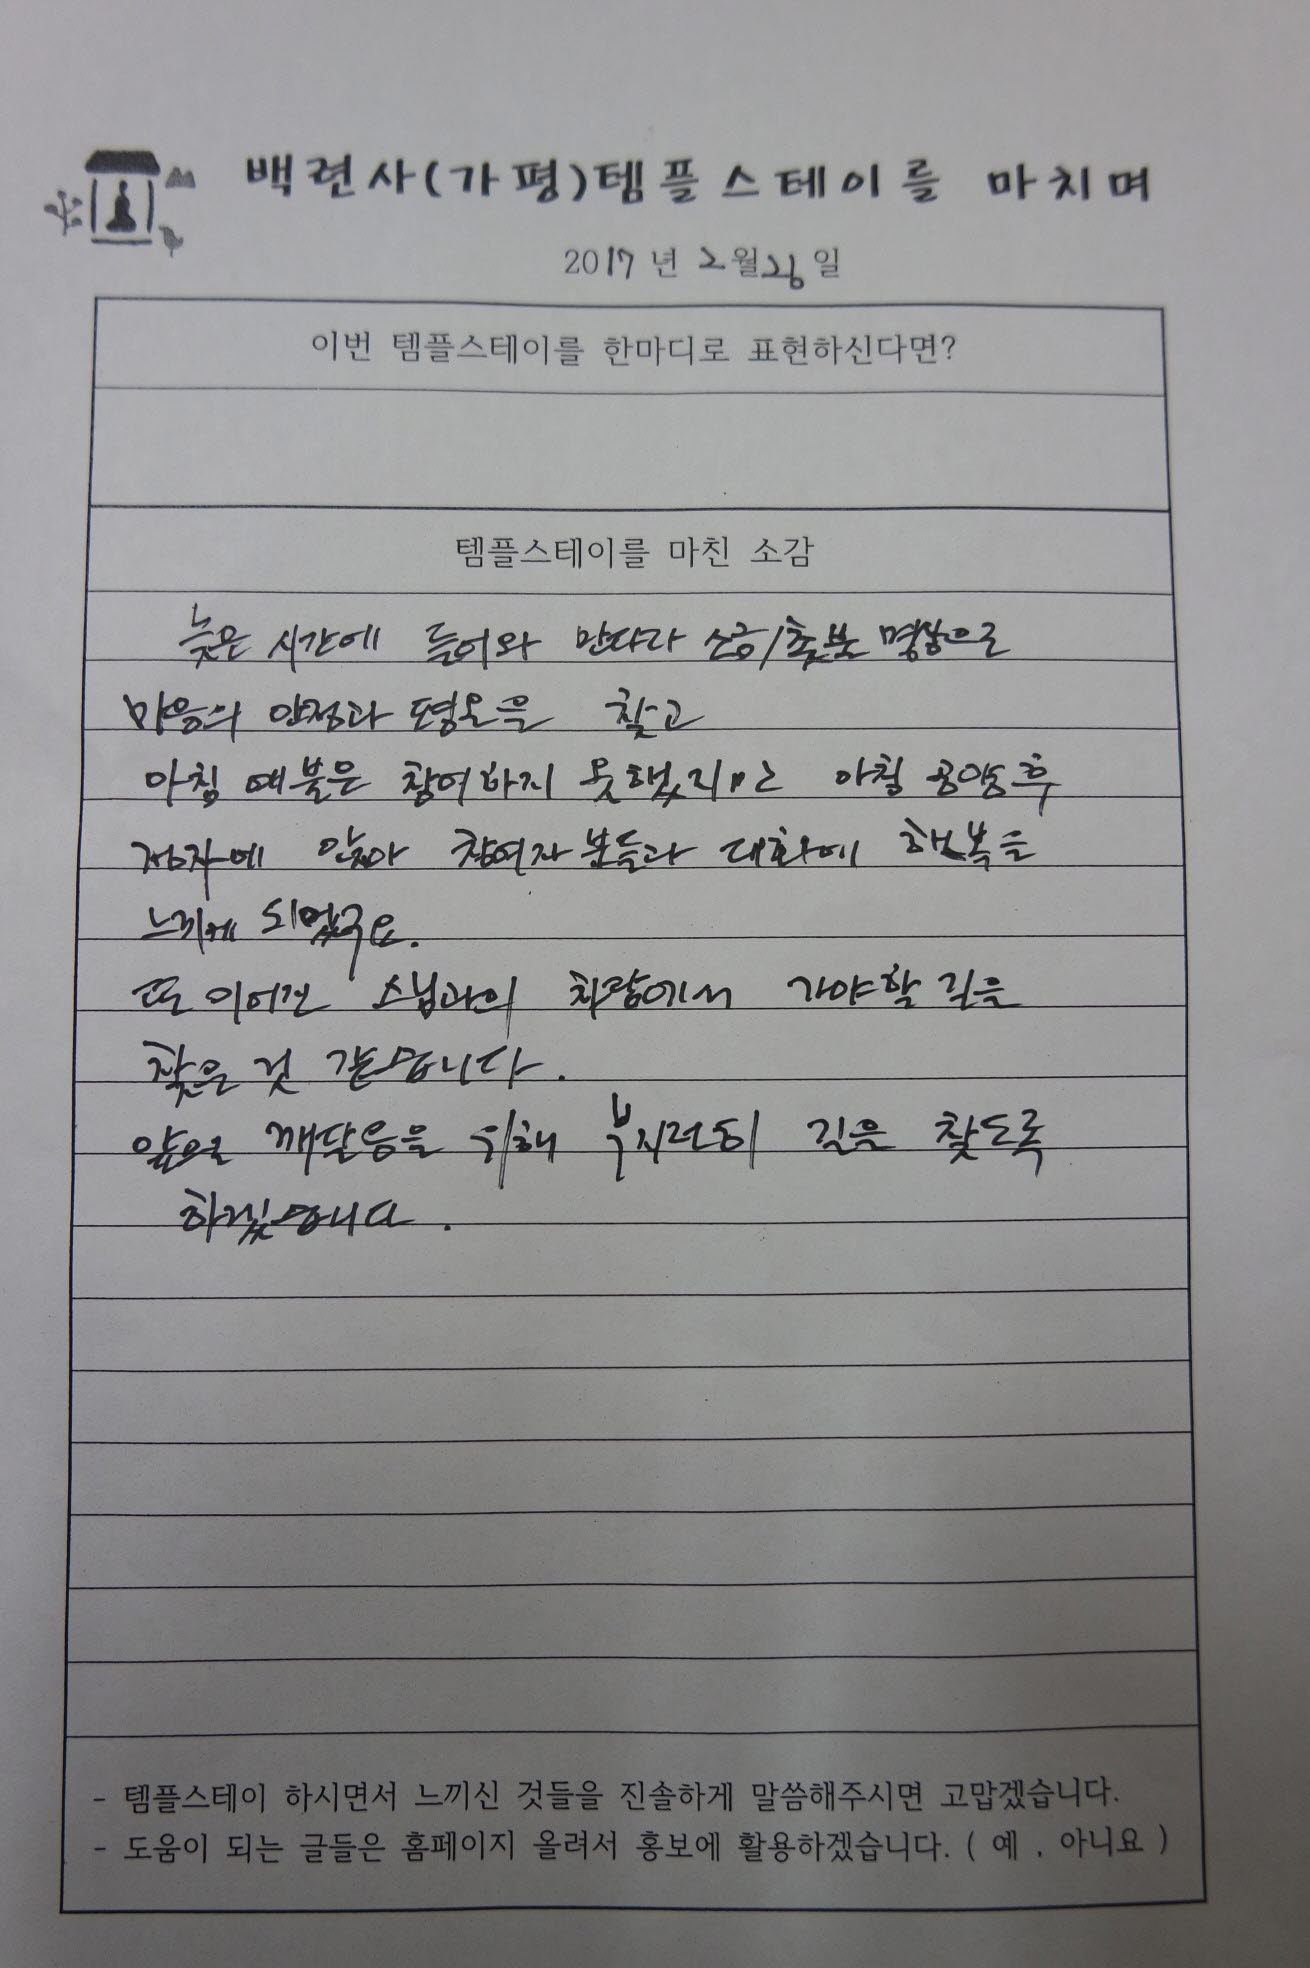 백련사(가평)템플스테이를 마치며
2017년 2월26일
이번 템플스테이를 한마디로 표현하신다면?
템플스테이를 마친 소감
늦은 시간에 들어와 만다라 소금/촛불 명상으로
마음의 안정과 평온을 찾고
아침 예불은 참여하지 못했지만 아침 공양후
정자에 앉아 참여자 분들과 대화에 행복을
느끼게 되었구요.
또 이어진 스님과의 차담에서 가야할 길을
찾은 것 같습니다.
앞으로 깨달음을 위해 부지런히 길을 찾도록
하겠습니다.
- 템플스테이 하시면서 느끼신 것들을 진솔하게 말씀해주시면 고맙겠습니다.
- 도움이 되는 글들은 홈페이지 올려서 홍보에 활용하겠습니다. ( 예 . 아니요 )